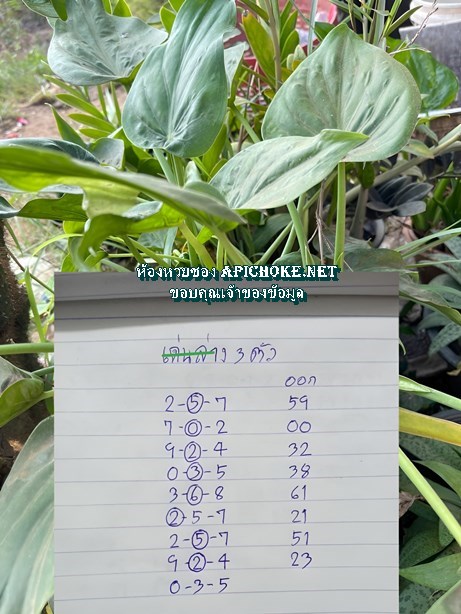 ห้องหวยซอง APICHOKE.NET
ขอบคุณเจ้าของข้อมูล
เด่นล่าง 3 ตัว
ออก
2-5-7 59
7-0-2 00
9-2-4 32
0-3-5 38
3-6-8 61
2-5-7 21
2-5-7 51
9-2-4 23
0-3-5